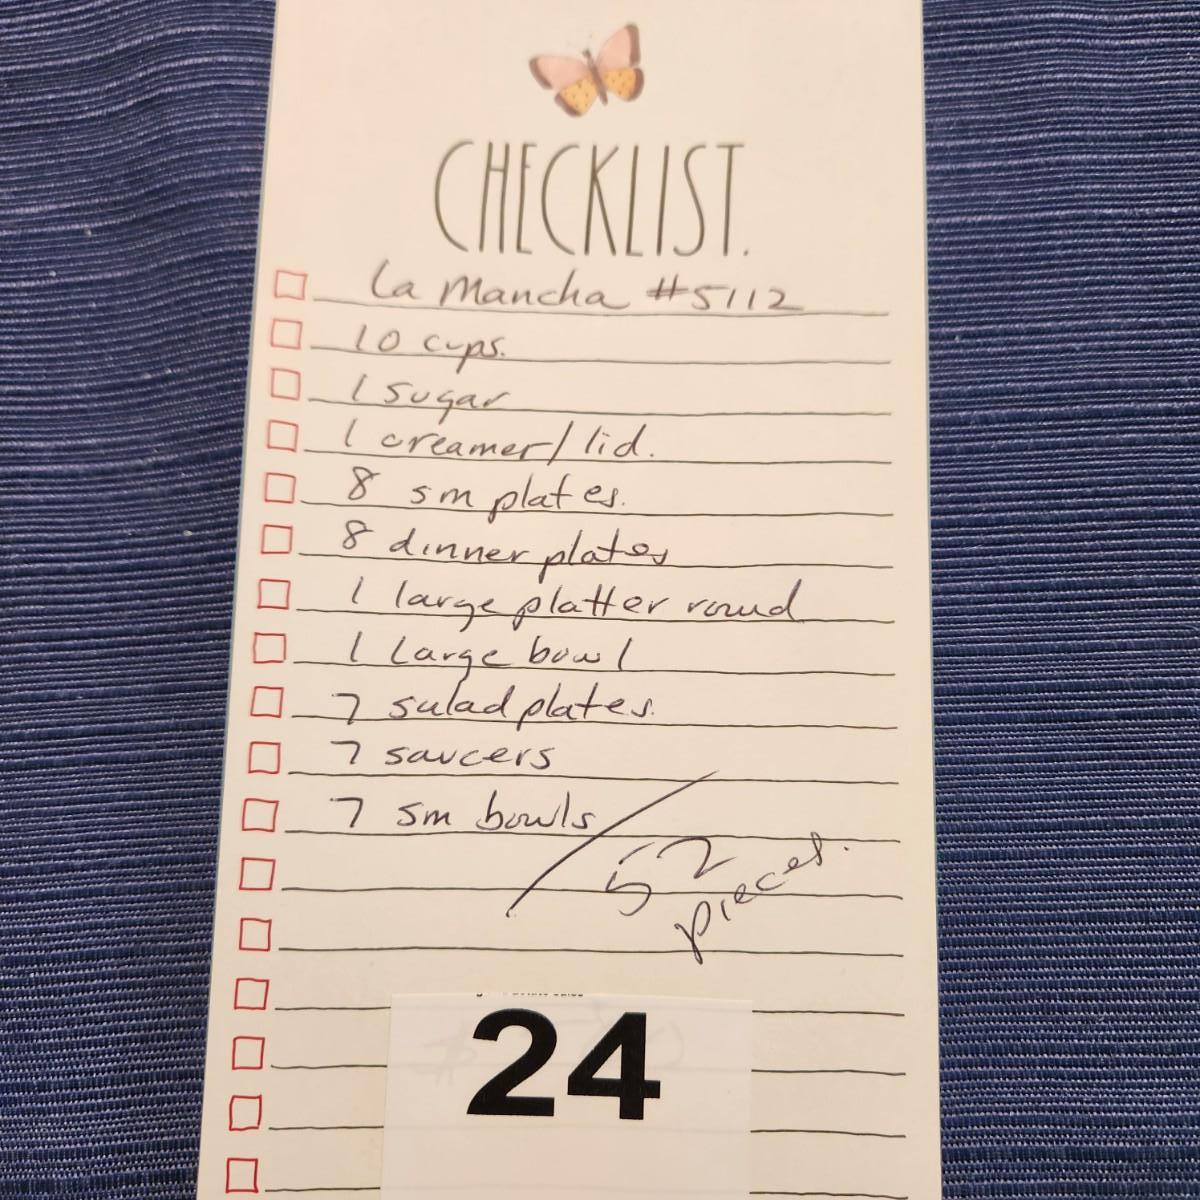 CHECKLIST.
La Mancha #5112
10 cups.
1 sugar
1 creamer/lid.
8 sm plates.
8 dinner plates
1 large platter round
1 Large bowl
7 salad plates.
7 saucers
7 sm bowls
52
pieces.
24